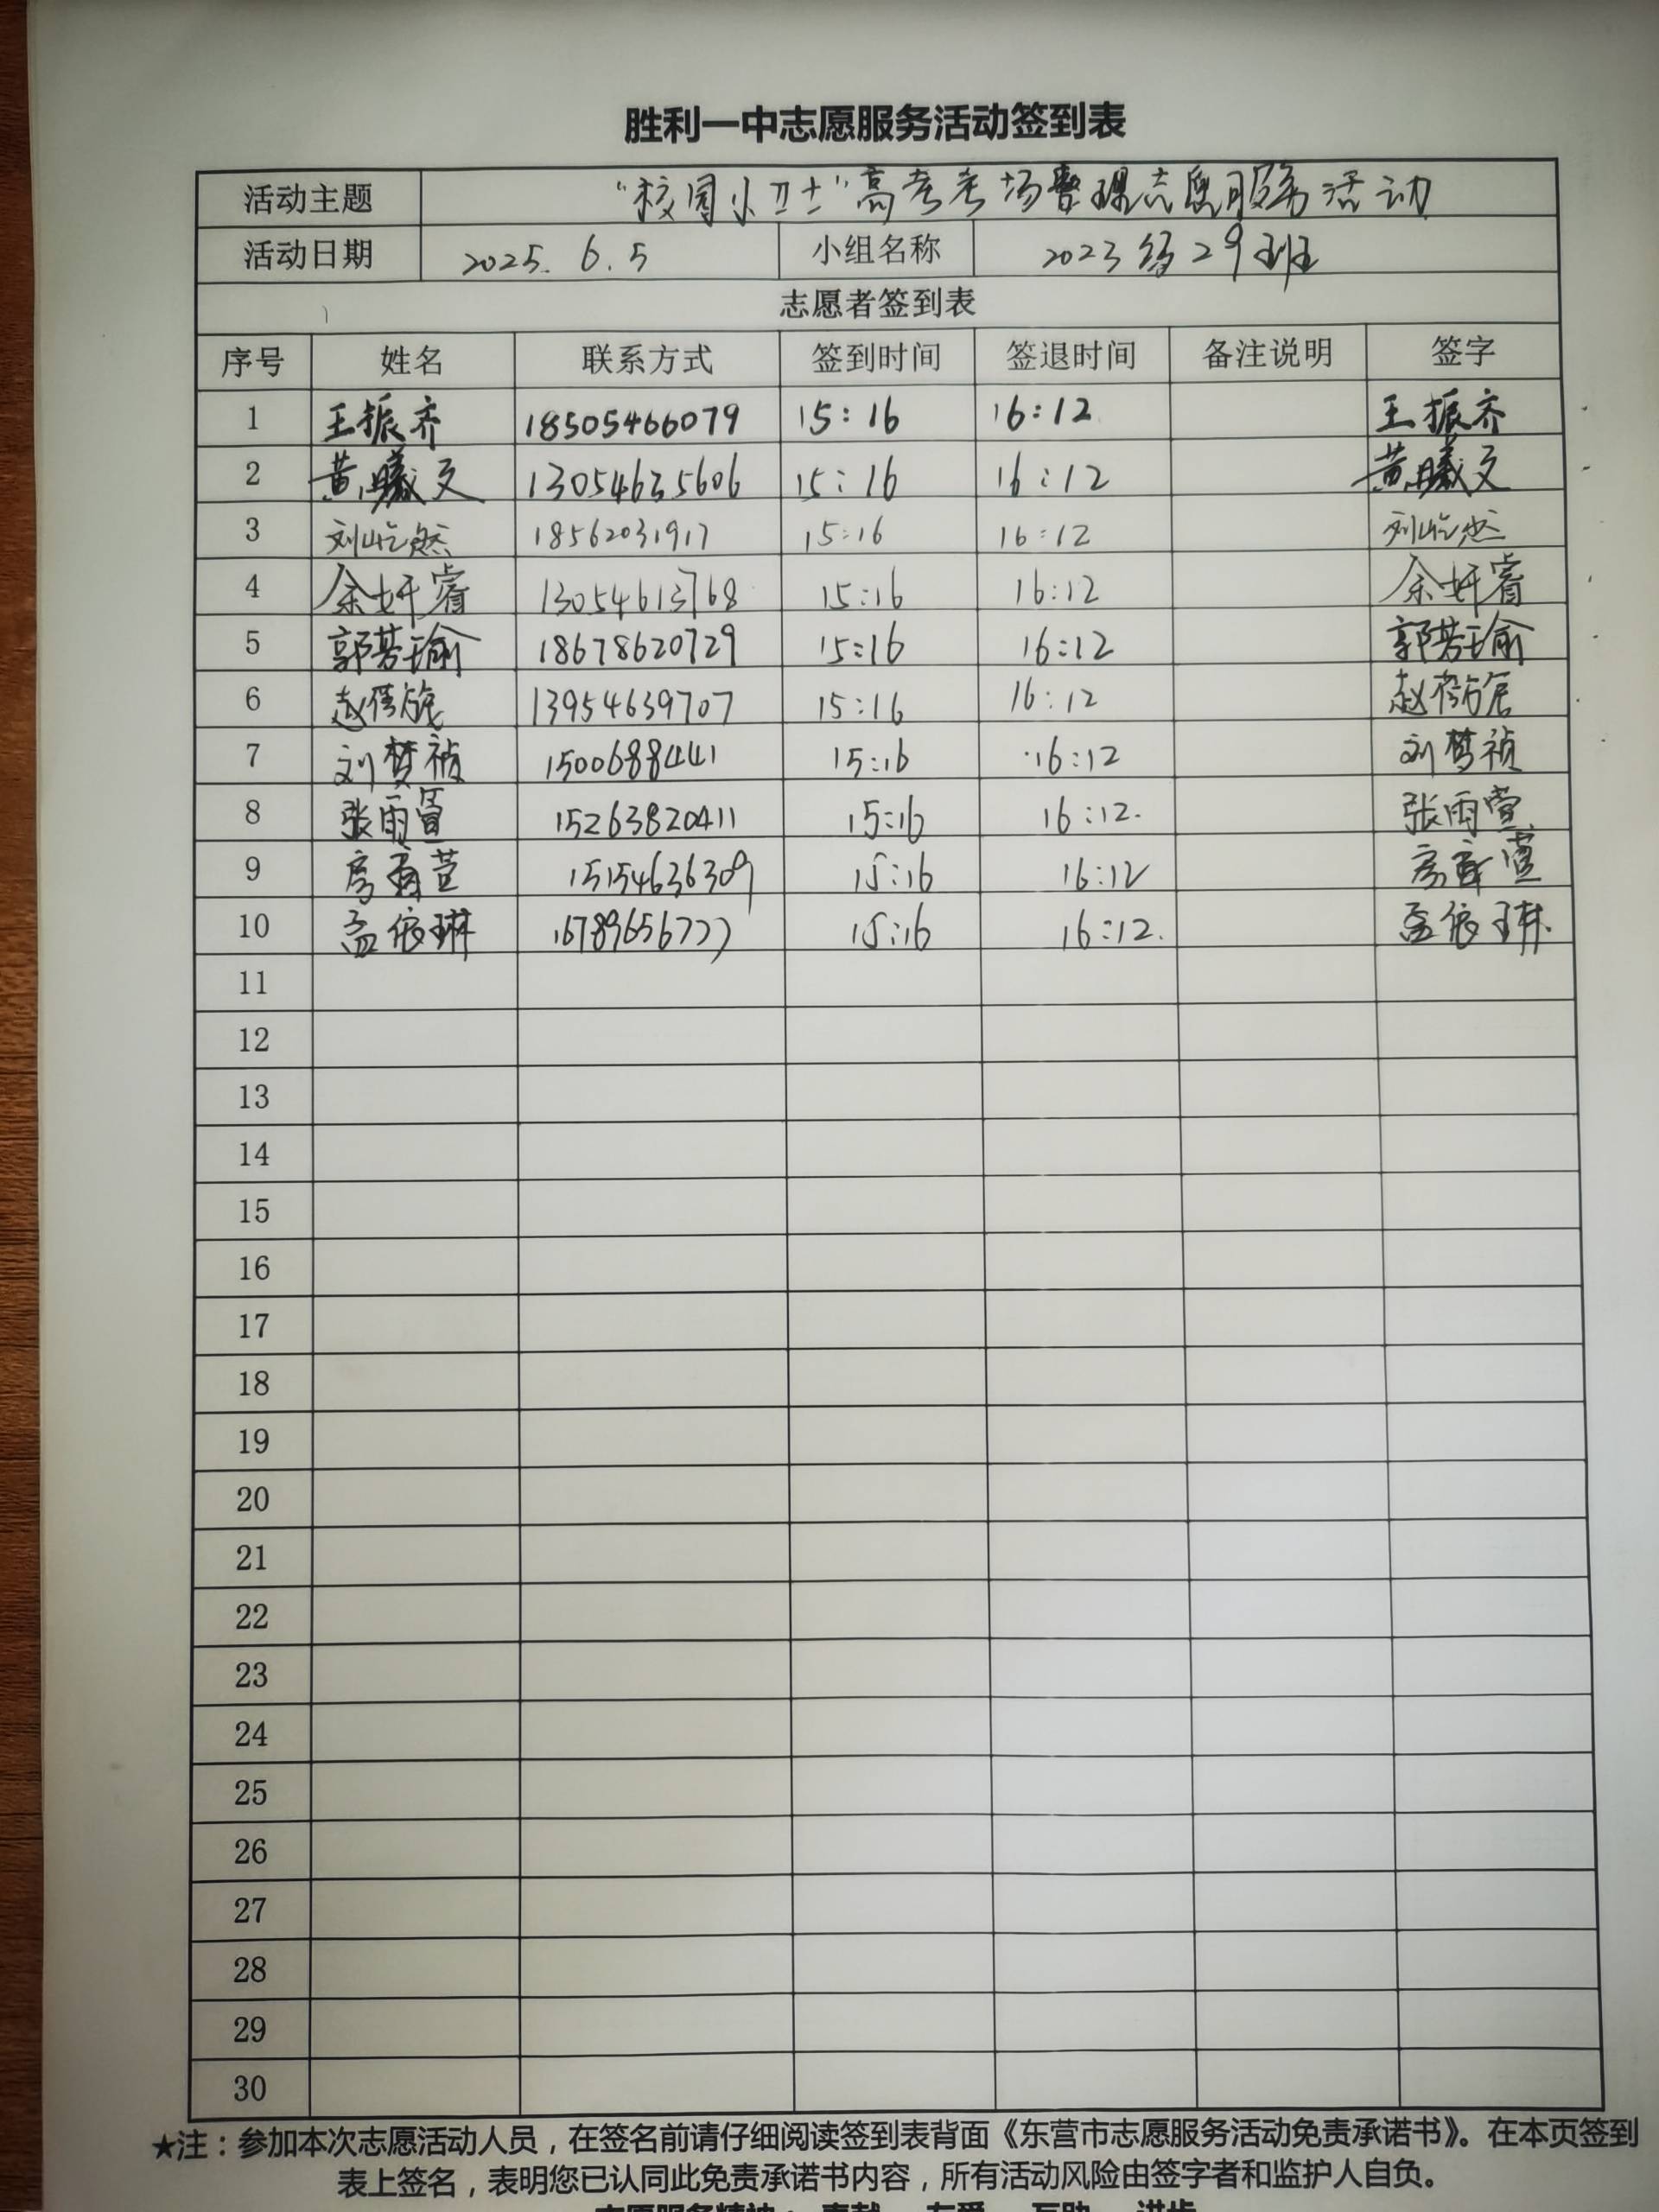 胜利一中志愿服务活动签到表
活动主题 “校园小卫士”高考考场整理志愿服务活动
活动日期 2025.6.5 小组名称 2023级29班
志愿者签到表
序号 姓名 联系方式 签到时间 签退时间 备注说明 签字
1 王振齐 18505466079 15:16 16:12 王振齐
2 黄曦文 13054635606 15:16 16:12 黄曦文
3 刘屹然 18562031917 15:16 16:12 刘屹然
4 余妍睿 13054613768 15:16 16:12 余妍睿
5 郭芳瑜 18678620729 15:16 16:12 郭芳瑜
6 13954639707 15:16 16:12
7 刘梦祯 1500688441 15:16 16:12 刘梦祯
8 张雨萱 15263820411 15:16 16:12. 张雨萱
9 15154636309 15:16 16:12
10 孟依琳 15:16 16:12. 孟依琳
11
12
13
14
15
16
17
18
19
20
21
22
23
24
25
26
27
28
29
30
★注：参加本次志愿活动人员，在签名前请仔细阅读签到表背面《东营市志愿服务活动免责承诺书》。在本页签到
表上签名，表明您已认同此免责承诺书内容，所有活动风险由签字者和监护人自负。
志愿服务精神：奉献 友爱 互助 进步